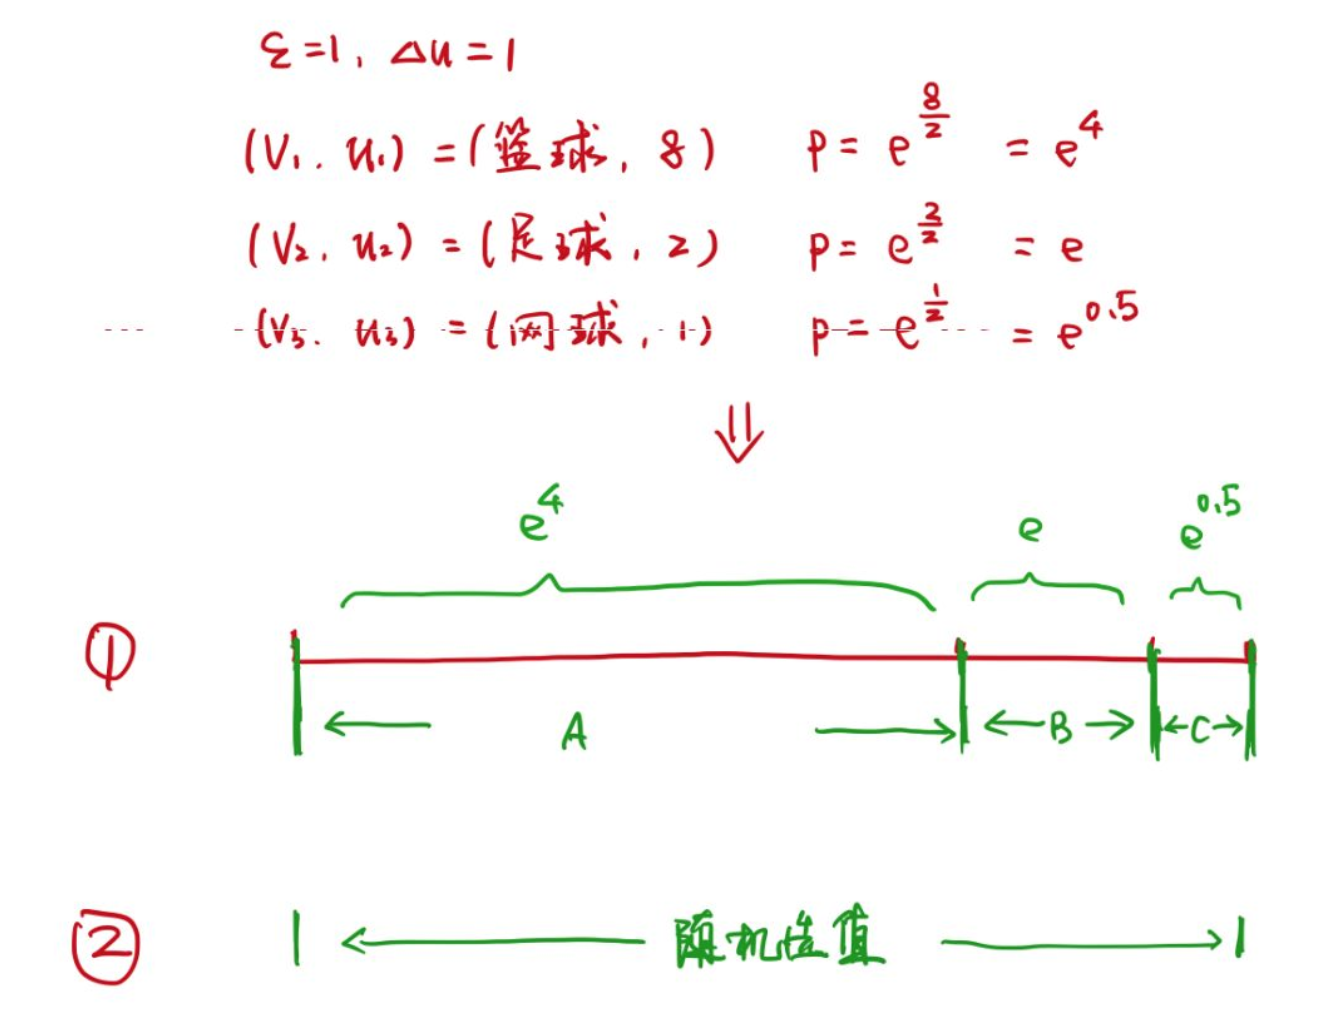 ε=1, Δu=1
(V₁. u₁) =(篮球, 8) p= e^(8/2) = e⁴
(V₂, u₂) =(足球, 2) p= e^(2/2) = e
(V₃. u₃) =(网球, 1) p=e^(1/2) = e^0.5
⇓
e⁴ e e^0.5
① A B C
② 随机选值